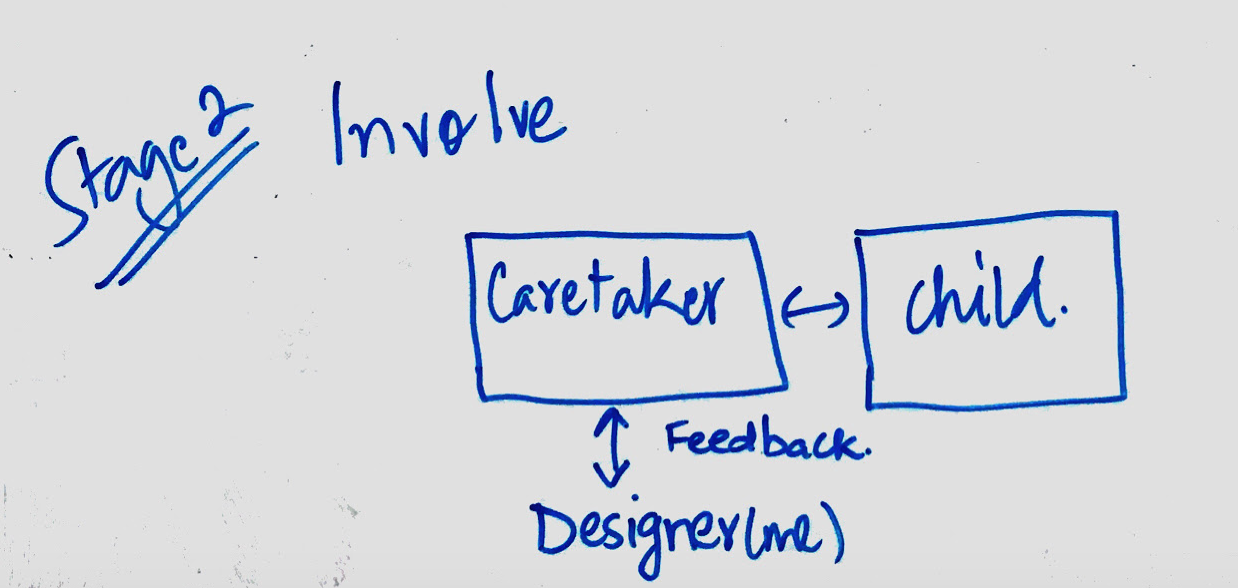 Stage 2
Involve
Caretaker
child.
Feedback.
Designer(me)